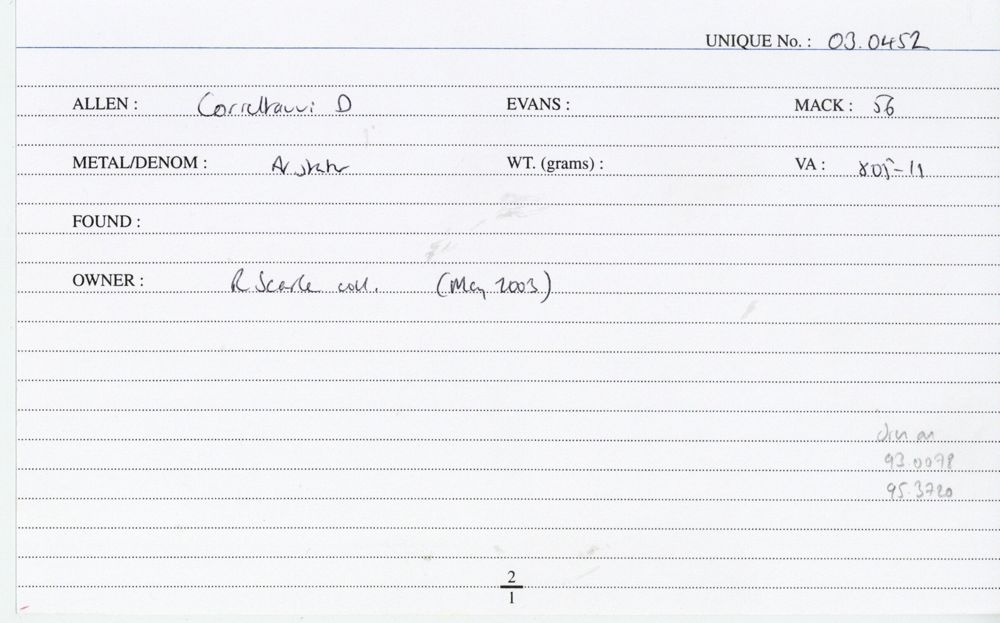 UNIQUE No. : 03.0452
ALLEN : Corieltauvi D EVANS : MACK : 56
METAL/DENOM : AV stater WT. (grams) : VA : 805-11
FOUND :
OWNER : R Scarle coll. (May 2003)
93.0078
95.3720
2
1